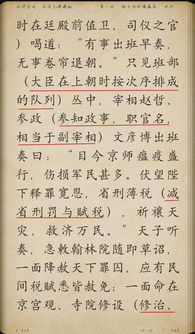 时在廷殿前值卫、司仪之官
）喝道：“有事出班早奏，
无事卷帘退朝。”只见班部
（大臣在上朝时按次序排成
的队列）丛中，宰相赵哲、
参政（参知政事，职官名，
相当于副宰相）文彦博出班
奏曰：“目今京师瘟疫盛
行，伤损军民甚多。伏望陛
下释罪宽恩，省刑薄税（减
省刑罚与赋税），祈禳天
灾，救济万民。”天子听
奏，急敕翰林院随即草诏，
一面降赦天下罪囚，应有民
间税赋悉皆赦免；一面命在
京宫观、寺院修设（修治、